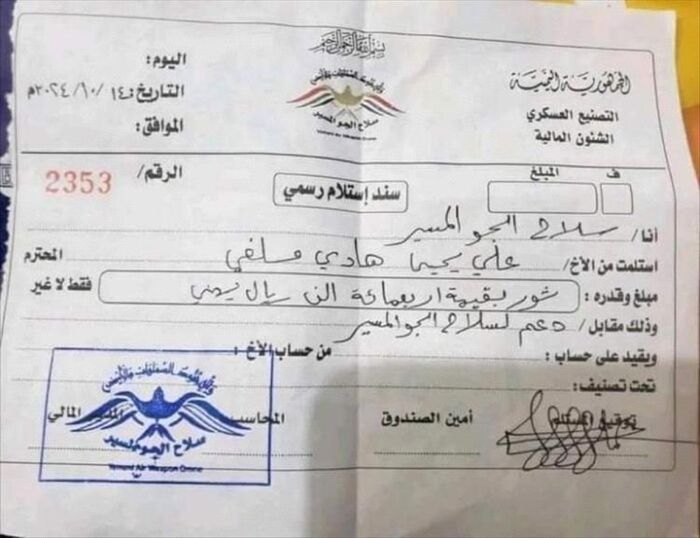 بسم الله الرحمن الرحيم
الجمهورية اليمنية
التصنيع العسكري
الشئون المالية
سلاح الجو المسير
Yemeni Air Weapon Drone
اليوم:
التاريخ: ١٤ / ١٠ / ٢٠٢٤م
الموافق:
الرقم/ 2353
سند إستلام رسمي
ف المبلغ
أنا/ سلاح الجو المسير
استلمت من الأخ/ علي يحيى هادي مسلفي المحترم
مبلغ وقدره: ثور بقيمة اربعمائة الف ريال يمني فقط لا غير
وذلك مقابل/ دعم لسلاح الجو المسير
ويقيد على حساب: من حساب الأخ:
تحت تصنيف:
توقيع المستلم أمين الصندوق المحاسب المالي
سلاح الجو المسير
Yemeni Air Weapon Drone